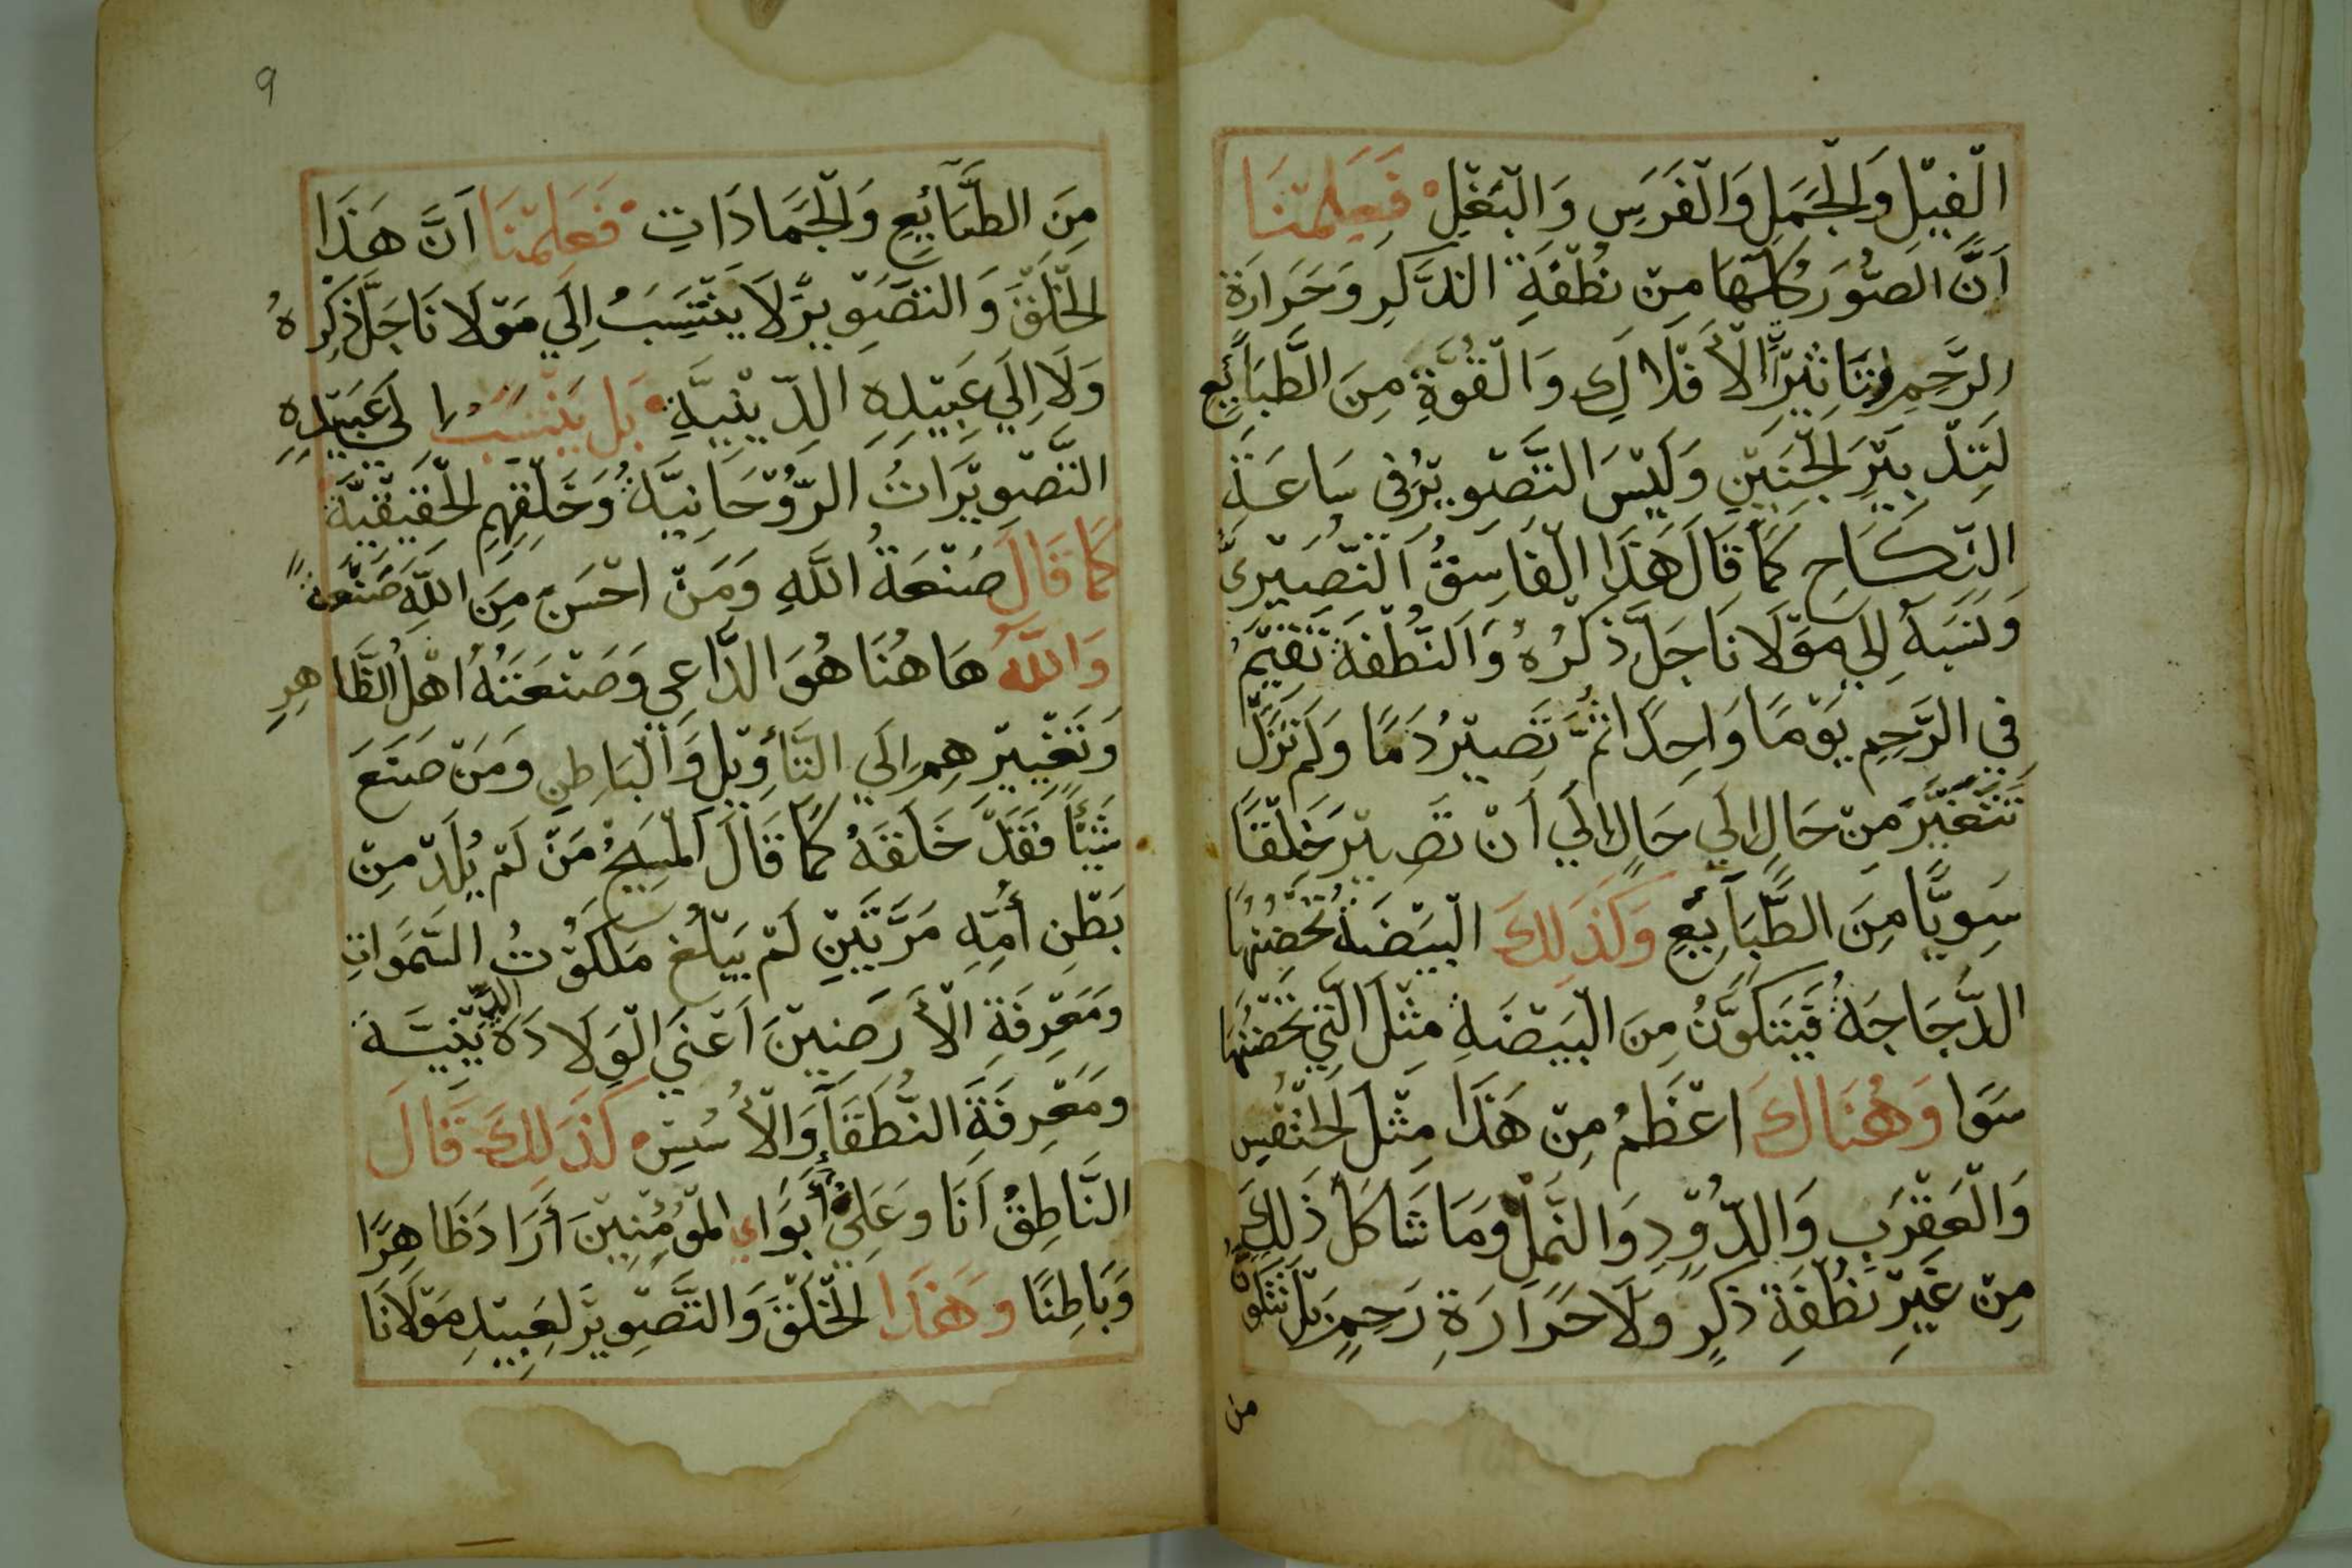 الْفِيْلِ وَالْجَمَلِ وَالْفَرَسِ وَالْبَغْلِ فَعَلِمْنَا
اَنَّ الصُّوَرَ كُلَّهَا مِنْ نُطْفَةِ الذَّكَرِ وَحَرَارَةِ
الرَّحِمِ وَتَاثِيْرِ الْأَفْلَاكِ وَالْقُوَّةِ مِنَ الطَّبَائِعِ
لِتَدْبِيْرِ الْجَنِيْنِ وَلَيْسَ التَّصْوِيْرُ فِي سَاعَةِ
النِّكَاحِ كَمَا قَالَ هَذَا الْفَاسِقُ النُّصَيْرِيُّ
وَنَسَبَهُ اِلَي مَوْلَانَا جَلَّ ذِكْرُهُ وَالنُّطْفَةُ تُقِيْمُ
فِي الرَّحِمِ يَوْمًا وَاحِدًا ثُمَّ تَصِيْرُ دَمًا وَلَمْ تَزَلْ
تَتَغَيَّرُ مِنْ حَالٍ اِلَي حَالٍ اِلَي اَنْ تَصِيْرَ خَلْقًا
سَوِيًّا مِنَ الطَّبَائِعِ وَكَذَلِكَ الْبَيْضَةُ تُحْضِنُهَا
الدَّجَاجَةُ فَيَتَكَوَّنُ مِنَ الْبَيْضَةِ مِثْلَ الَّتِي تَحْضُنُهَا
سَوَا وَهُنَاكَ اعْظَمُ مِنْ هَذَا مِثْلَ الْخُنْفُسِ
وَالْعَقْرَبِ وَالدُّوْدِ وَالنَّمْلِ وَمَا شَاكَلَ ذَلِكَ
مِنْ غَيْرِ نُطْفَةِ ذَكَرٍ وَلَا حَرَارَةِ رَحِمٍ بَلْ تَتَكَوَّنُ
من
9
مِنَ الطَّبَائِعِ وَالْجَمَادَاتِ فَعَلِمْنَا اَنَّ هَذَا
الْخَلْقَ وَالتَّصْوِيْرَ لَا يَنْتَسِبُ اِلَي مَوْلَانَا جَلَّ ذِكْرُهُ
وَلَا اِلَي عَبِيْدِهِ الدِّيْنِيَّةِ بَل يَنْتَسِبُ اِلَى عَبِيْدِهِ
التَّصْوِيْرَاتُ الرُّوْحَانِيَّةُ وَخَلْقِهِمِ الْحَقِيْقِيَّةِ
كَمَا قَالَ صَنْعَةُ اللَّهِ وَمَنْ احْسَنُ مِنَ اللَّهِ صَنْعَةً
وَاللَّهُ هَاهُنَا هُوَ الدَّاعِي وَصَنْعَتُهُ اَهْلُ الظَّاهِرِ
وَتَغْيِيْرِهِمِ اِلَي التَّأْوِيْلِ وَالْبَاطِنِ وَمَنْ صَنَعَ
شَيْئًا فَقَدْ خَلَقَهُ كَمَا قَالَ الْمَسِيْحُ مَنْ لَمْ يُلِدْ مِنْ
بَطْنِ أُمِّهِ مَرَّتَيْنِ لَمْ يَبْلُغْ مَلَكُوْتُ السَّمَوَاتِ
وَمَعْرِفَةِ الْأَرَضِيْنَ اَعْنَي الْوِلَادَةَ الدِّيْنِيَّةَ
وَمَعْرِفَةَ النُّطَقَآءِ وَالْأُسُسِ كَذَلِكَ قَالَ
النَّاطِقُ اَنَا وَعَلِيٌّ أَبَوَايِ الْمُؤْمِنِيْنَ أَرَادَ ظَاهِرًا
وَبَاطِنًا وَهَذَا الْخَلْقَ وَالتَّصْوِيْرَ لِعَبِيْدِ مَوْلَانَا